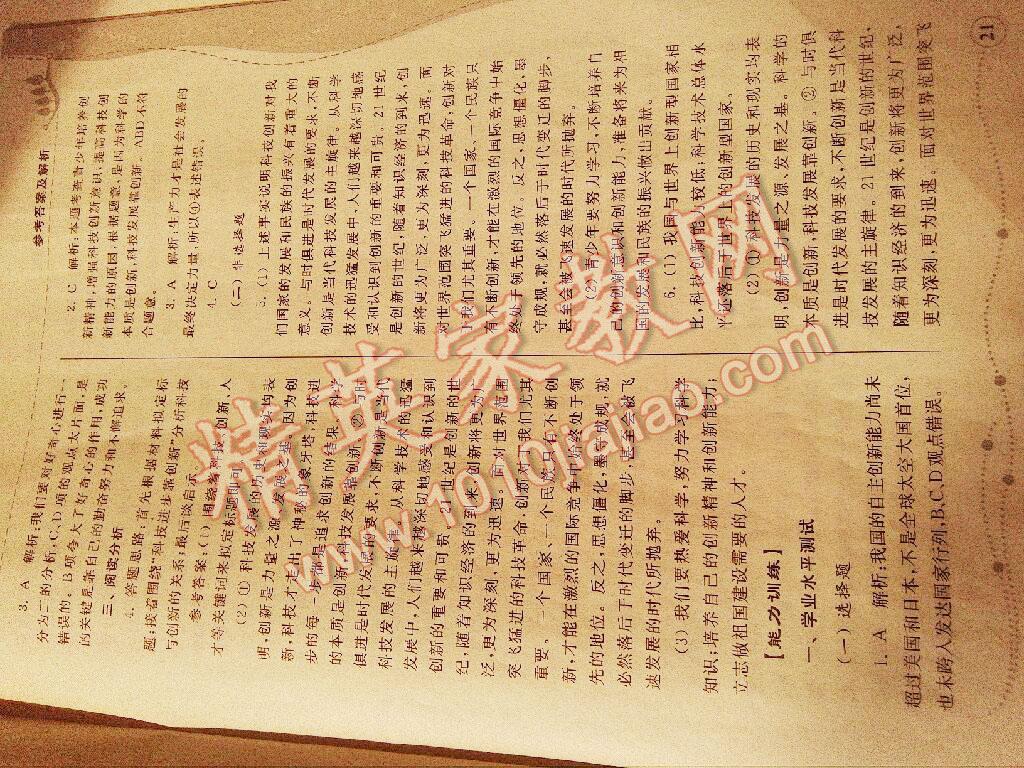 参考答案及解析
3. A　解析:我们要对好奇心进行一
分为二的分析,C、D项的观点太片面,是
错误的。B项夸大了好奇心的作用,成功
的关键是靠自己的勤奋努力和不懈追求。
三、阅读分析
4. 答题思路:首先根据材料拟定标
题;接着围绕“科技进步靠创新”分析科技
与创新的关系;最后谈启示。
参考答案:(1)围绕着科技、创新、人
才等关键词来拟定标题即可。
(2)①科技发展的历史和现实均表
明,创新是力量之源、发展之基。因为创
新,科技才走出了神秘的象牙塔,科技进
步的每一步都是追求创新的结果。科学
的本质是创新,科技发展靠创新。②与时
俱进是时代发展的要求,不断创新是当代
科技发展的主旋律。从科学技术的迅猛
发展中,人们越来越深切地感受和认识到
创新的重要和可贵。21世纪是创新的世
纪,随着知识经济的到来,创新将更为广
泛,更为深刻,更为迅速。面对世界范围
突飞猛进的科技革命,创新对我们尤其
重要。一个国家、一个民族只有不断创
新,才能在激烈的国际竞争中始终处于领
先的地位。反之,思想僵化,墨守成规,就
必然落后于时代变迁的脚步,甚至会被飞
速发展的时代所抛弃。
(3)我们要热爱科学,努力学习科学
知识;培养自己的创新精神和创新能力;
立志做祖国建设需要的人才。
【能力训练】
一、学业水平测试
(一)选择题
1. A　解析:我国的自主创新能力尚未
超过美国和日本,不是全球太空大国首位,
也未跨入发达国家行列,B、C、D观点错误。
2. C　解析:本题考查青少年培养创
新精神,增强科技创新意识,提高科技创
新能力的原因。根据题意,是因为科学的
本质是创新,科技发展靠创新。ABD不符
合题意。
3. A　解析:生产力才是社会发展的
最终决定力量,所以④表述错误。
4. C
(二)非选择题
5.(1)上述事实说明科技创新对我
们国家的发展和民族的振兴有着重大的
意义。与时俱进是时代发展的要求,不断
创新是当代科技发展的主旋律。从科学
技术的迅猛发展中,人们越来越深切地感
受和认识到创新的重要和可贵。21世纪
是创新的世纪,随着知识经济的到来,创
新将更为广泛,更为深刻,更为迅速。面
对世界范围突飞猛进的科技革命,创新对
于我们尤其重要。一个国家、一个民族只
有不断创新,才能在激烈的国际竞争中始
终处于领先的地位。反之,思想僵化,墨
守成规,就必然落后于时代变迁的脚步,
甚至会被飞速发展的时代所抛弃。
(2)青少年要努力学习,不断培养自
己的创新意识和创新能力,准备将来为祖
国的发展和民族的振兴做出贡献。
6.(1)我国与世界上创新型国家相
比,科技创新能力较低;科学技术总体水
平还落后于世界上的创新型国家。
(2)①科技发展的历史和现实均表
明,创新是力量之源、发展之基。科学的
本质是创新,科技发展靠创新。②与时俱
进是时代发展的要求,不断创新是当代科
技发展的主旋律。21世纪是创新的世纪,
随着知识经济的到来,创新将更为广泛,
更为深刻,更为迅速。面对世界范围突飞
21
精英家教网
www.1010jiajiao.com